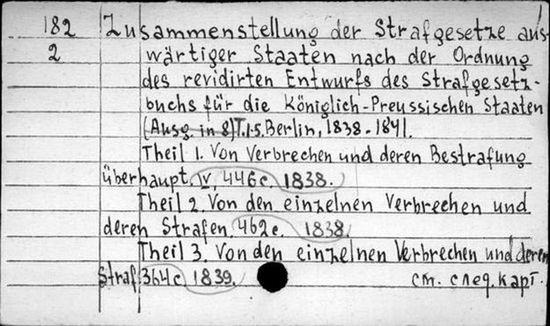 182 Zusammenstellung der Strafgesetze aus-
2 wärtiger Staaten nach der Ordnung
des revidirten Entwurfs des Strafgesetz-
buchs für die Königlich-Preussischen Staaten
(Ausg. in 8) T.1-5. Berlin, 1838-1841.
Theil 1. Von Verbrechen und deren Bestrafung
überhaupt. IV, 446 c. 1838.
Theil 2. Von den einzelnen Verbrechen und
deren Strafen. 462 c. 1838.
Theil 3. Von den einzelnen Verbrechen und deren
Straf. 364 c. 1839. см. след. карт.